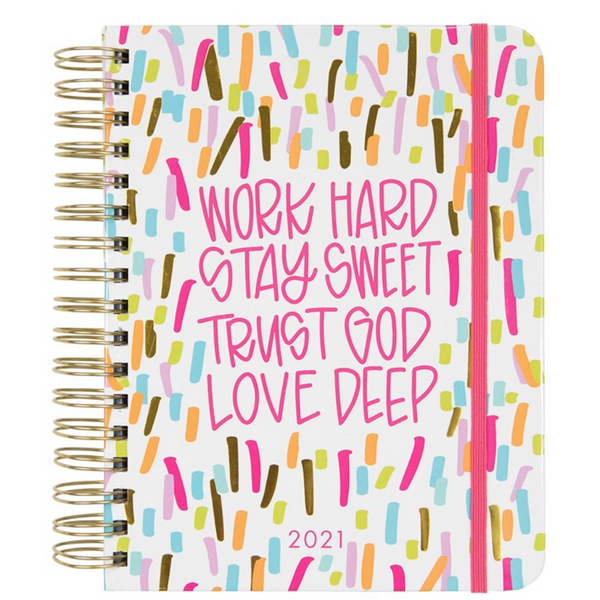 WORK HARD
STAY SWEET
TRUST GOD
LOVE DEEP
2021